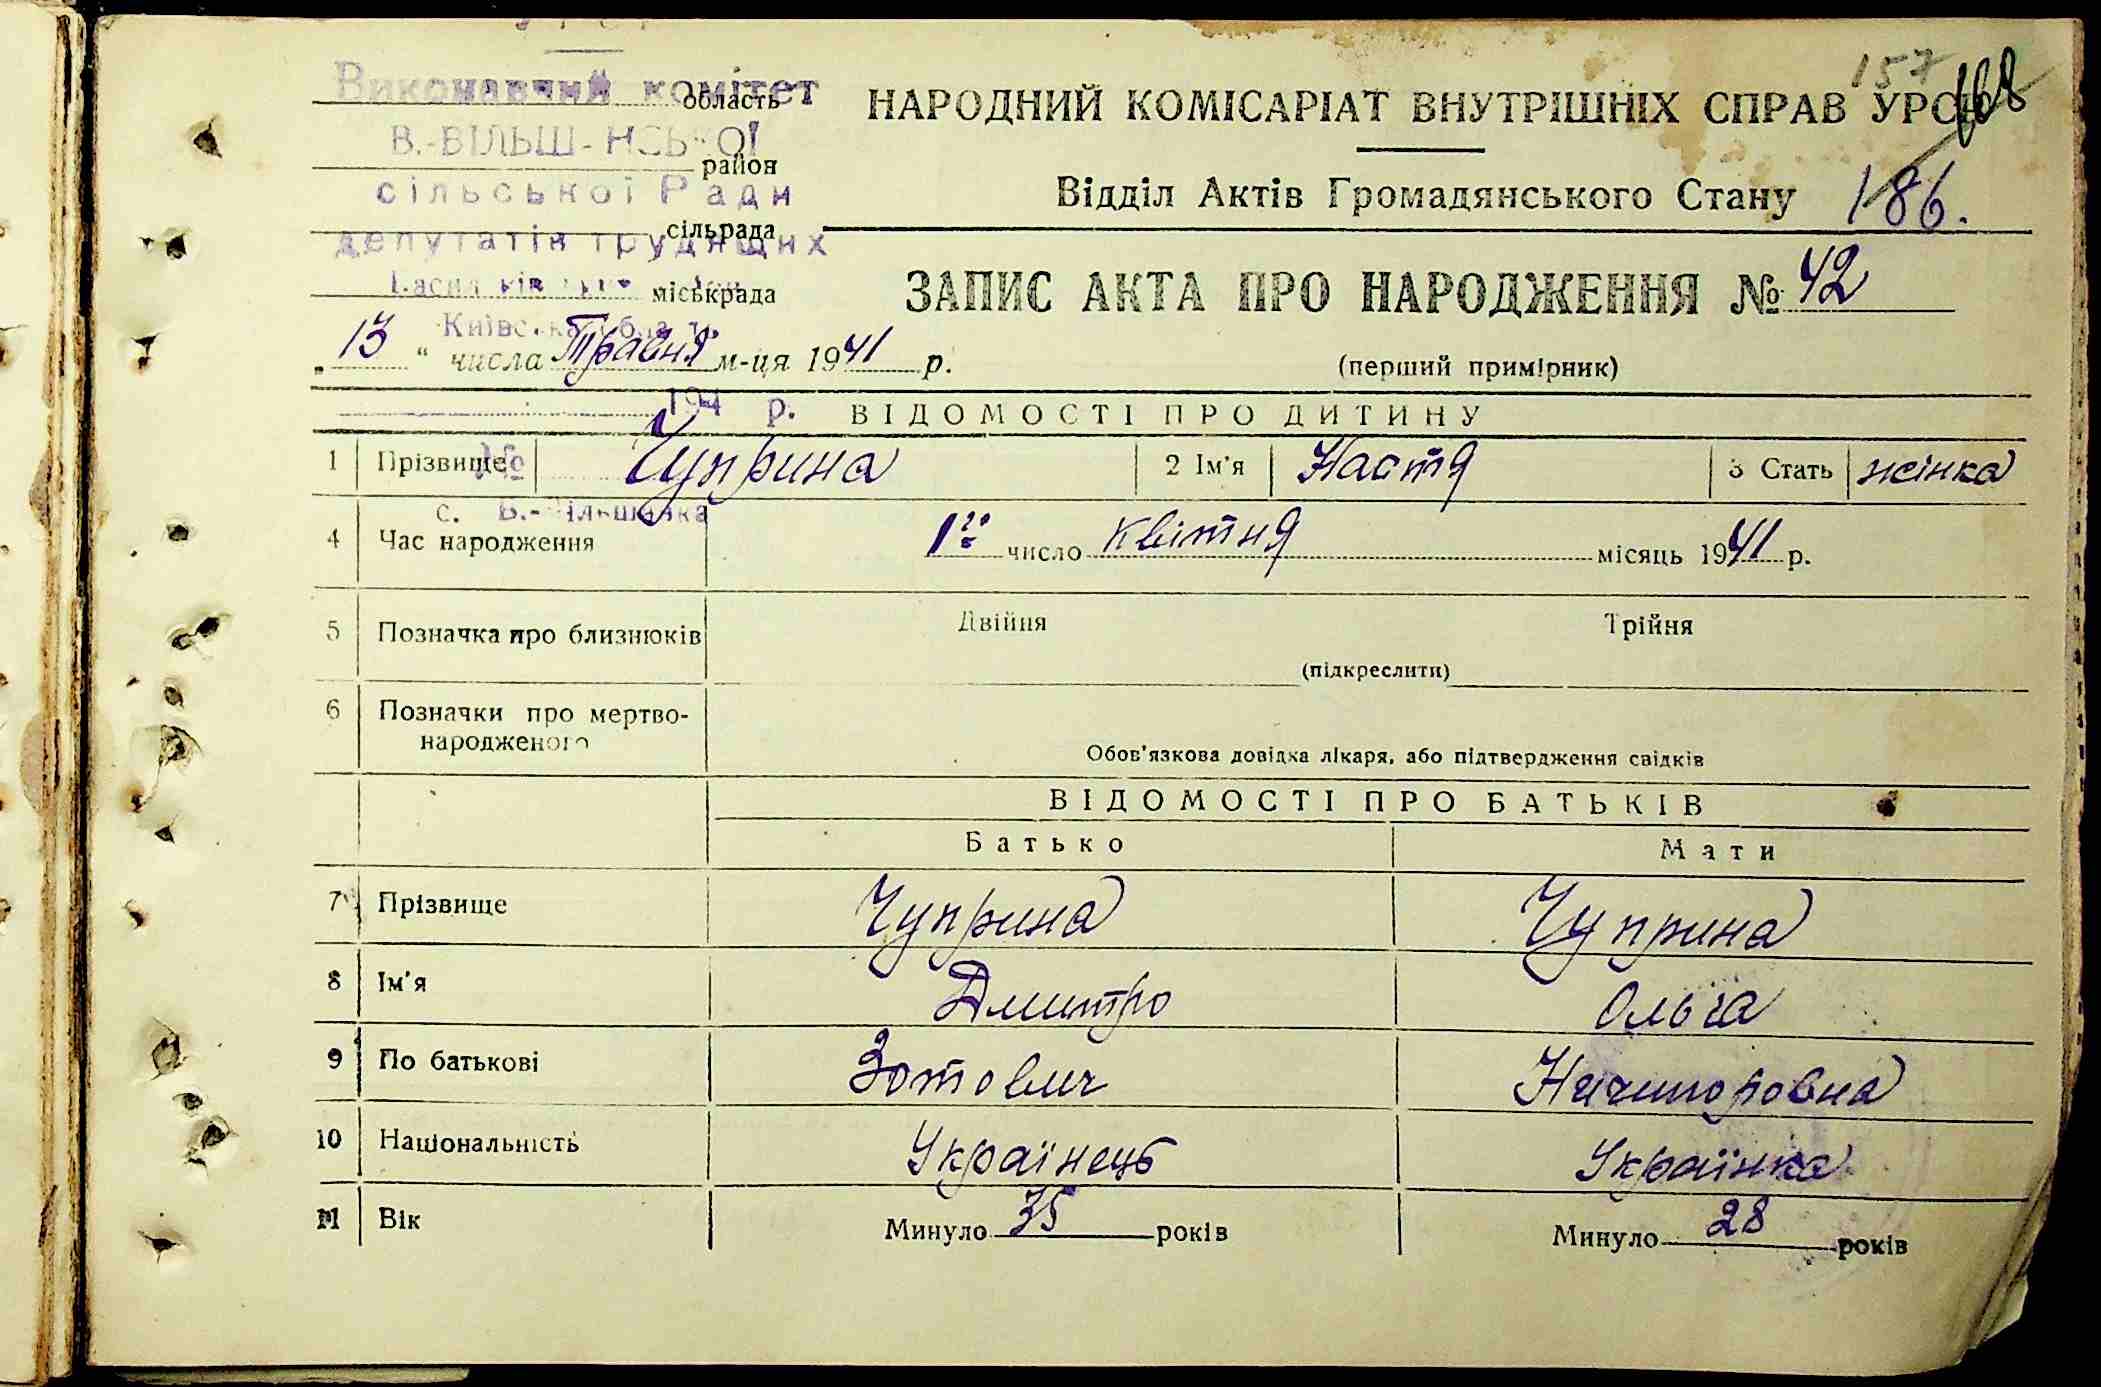 157 168
Виконавчий комітет
область
НАРОДНИЙ КОМІСАРІАТ ВНУТРІШНІХ СПРАВ УРСР
район
сільської Ради
Відділ Актів Громадянського Стану 186.
сільрада
депутатів трудящих
міськрада
ЗАПИС АКТА ПРО НАРОДЖЕННЯ № 42
„ 13 “ числа Травня м-ця 1941 р.
(перший примірник)
194 р.
ВІДОМОСТІ ПРО ДИТИНУ
1 Прізвище Чуприна 2 Ім'я Настя 3 Стать жінка
№
с. В.-Вільшанка
4 Час народження 1го число квітня місяць 1941 р.
5 Позначка про близнюків Двійня Трійня
(підкреслити)
6 Позначки про мертво-
народженого
Обов'язкова довідка лікаря, або підтвердження свідків
ВІДОМОСТІ ПРО БАТЬКІВ
Батько Мати
7 Прізвище Чуприна Чуприна
8 Ім'я Дмитро Ольга
9 По батькові Зотович Ничипоровна
10 Національність Українець Українка
11 Вік Минуло 35 років Минуло 28 років